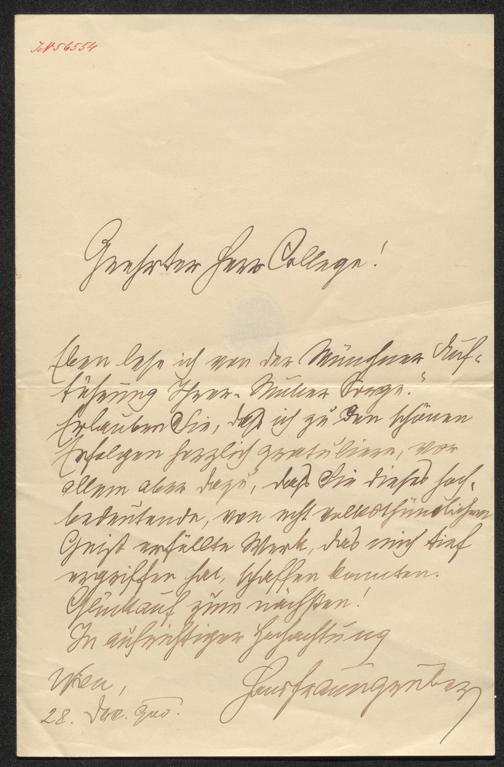 IN 56554
Geehrter Herr College!
Eben lese ich von der Münchner Auf-
führung Ihrer „Mutter Sorge."
Erlauben Sie, daß ich zu den schönen
Erfolgen herzlich gratuliere, vor
allem aber dazu, daß Sie dieses hoch-
bedeutende, von echt volksthümlichem
Geist erfüllte Werk, das mich tief
ergriffen hat, schaffen konnten.
Glückauf zum nächsten!
In aufrichtiger Hochachtung
Wien,
Hans Fraungruber
28.